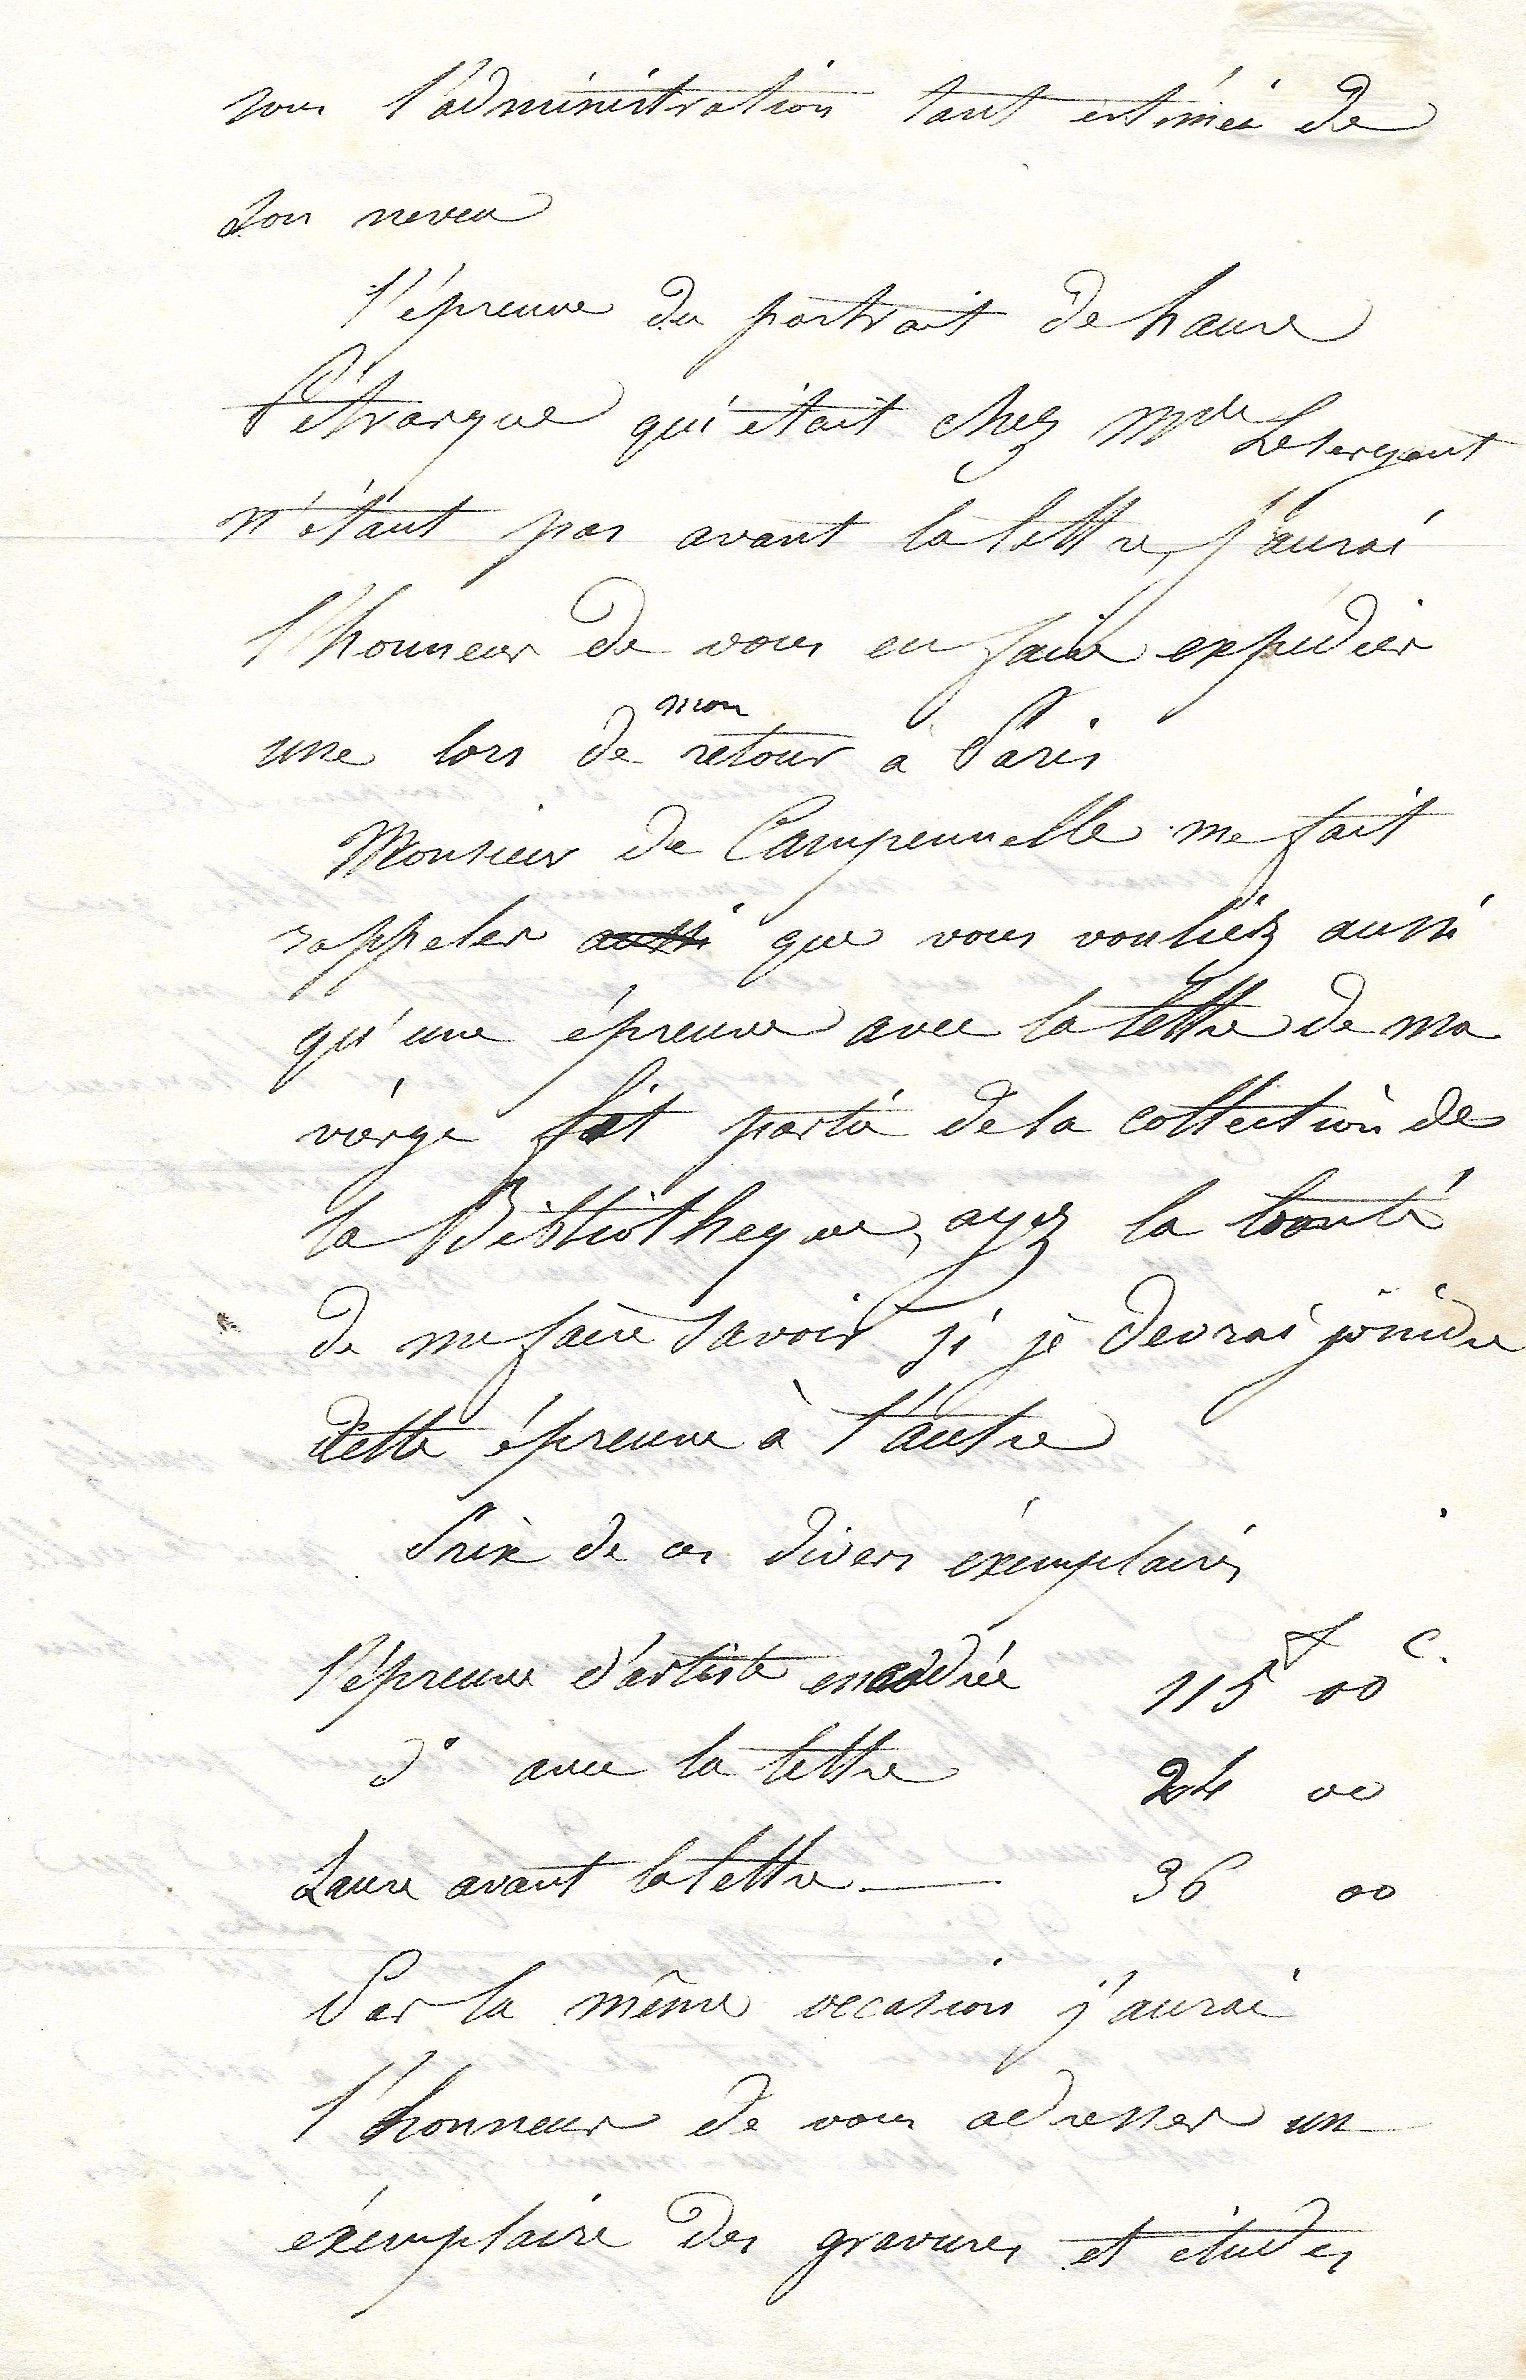 sous l'administration tant estimée de
son neveu
l'épreuve du portrait de Laure
Pétrarque qui était chez Mde Lesergent
n'étant pas avant la lettre, j'aurai
l'honneur de vous en faire expédier
une lors de mon retour à Paris
Monsieur de Campennelle me fait
rappeler aussi que vous vouliez aussi
qu'une épreuve avec la lettre de ma
vierge fit partie de la collection de
la Bibliotheque, ayez la bonté
de me faire savoir si je devrai joindre
cette épreuve à l'autre
Prix de ces divers éxemplaires
l'épreuve d'artiste encadrée 115 f 00 c.
do avec la lettre 24 00
Laure avant la lettre — 36 00
Par la même occasion j'aurai
l'honneur de vous adresser un
éxemplaire des gravures et études